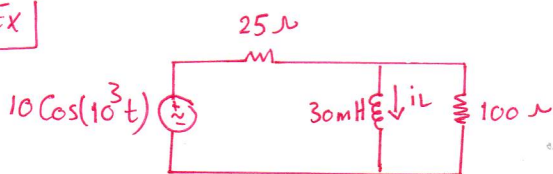 Ex
25 Ω
10 Cos(10³t)
30mH
iL
100 Ω